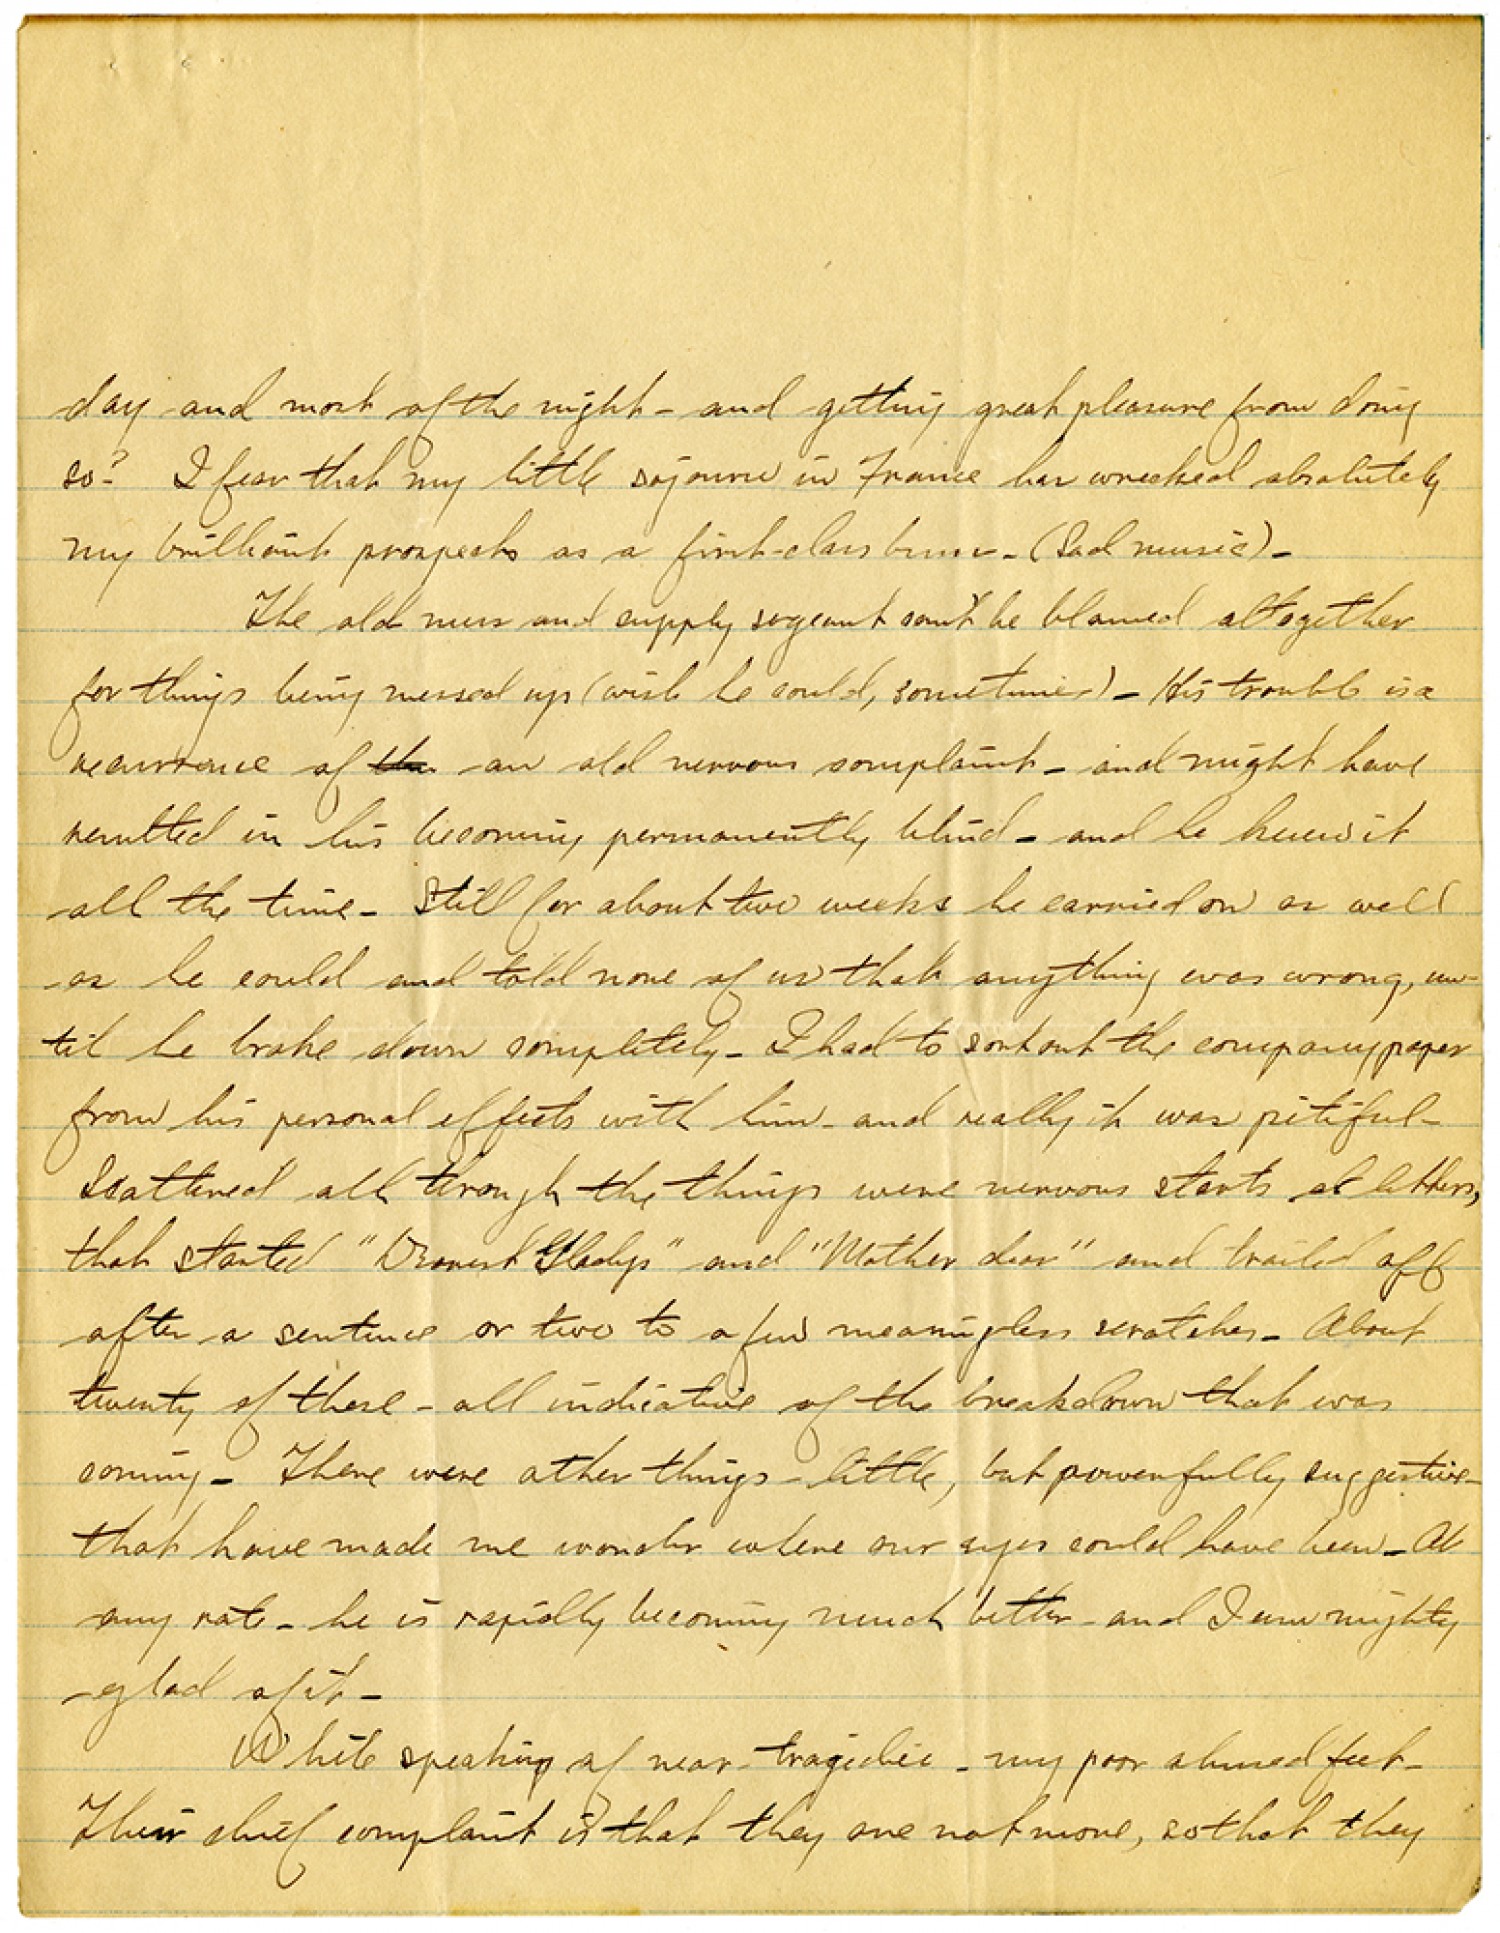 day and most of the night - and getting great pleasure from doing
so? I fear that my little sojourn in France has wrecked absolutely
my brilliant prospects as a first-class bum - (Sad music) -
The old mess and supply sergeant can't be blamed altogether
for things being messed up (wish he could, sometimes) - His trouble is a
recurrence of the an old nervous complaint - and might have
resulted in his becoming permanently blind - and he knew it
all the time - Still for about two weeks he carried on as well
as he could and told none of us that anything was wrong, un-
til he broke down completely - I had to sort out the company paper
from his personal effects with him - and really it was pitiful -
Scattered all through the things were nervous starts at letters,
that started "Dearest Gladys" and "Mother dear" and trailed off
after a sentence or two to a few meaningless scratches - About
twenty of these - all indicative of the breakdown that was
coming - There were other things - little, but powerfully suggestive -
that have made me wonder where our eyes could have been - At
any rate - he is rapidly becoming much better - and I am mighty
glad of it -
While speaking of near-tragedies - my poor abused feet -
Their chief complaint is that they are not more, so that they